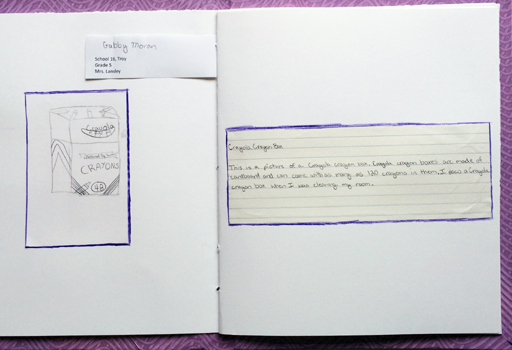 Gabby Moran
School 16, Troy
Grade 5
Mrs. Lansley
Crayola
CRAYONS
Crayola Crayon Box
This is a picture of a Crayola crayon box. Crayola crayon boxes are made of
cardboard and can come with as many as 120 crayons in them. I saw a Crayola
crayon box when I was cleaning my room.